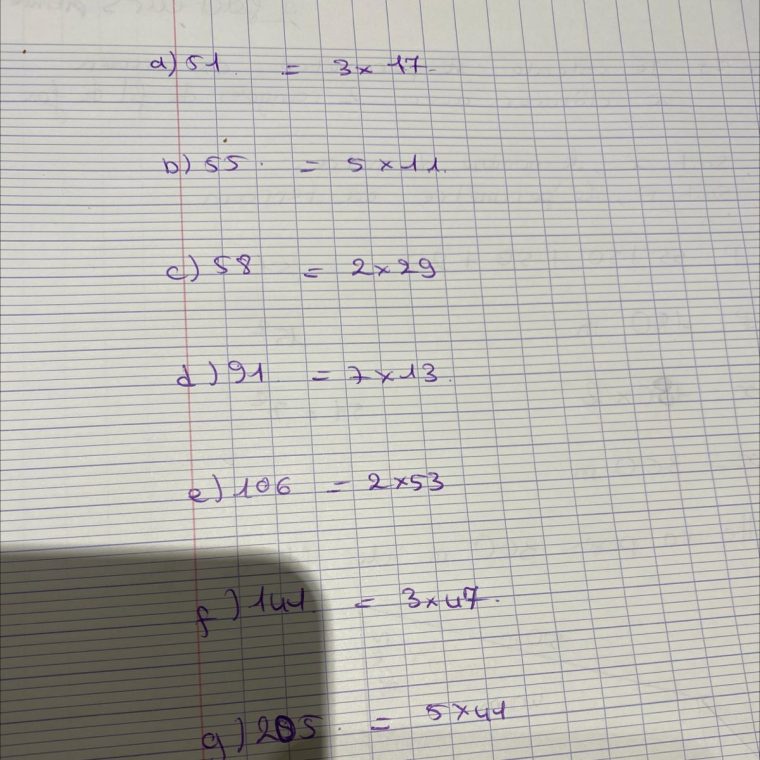 a) 51 = 3 × 17
b) 55 = 5 × 11
c) 58 = 2 × 29
d) 91 = 7 × 13
e) 106 = 2 × 53
f) 141 = 3 × 47
g) 205 = 5 × 41